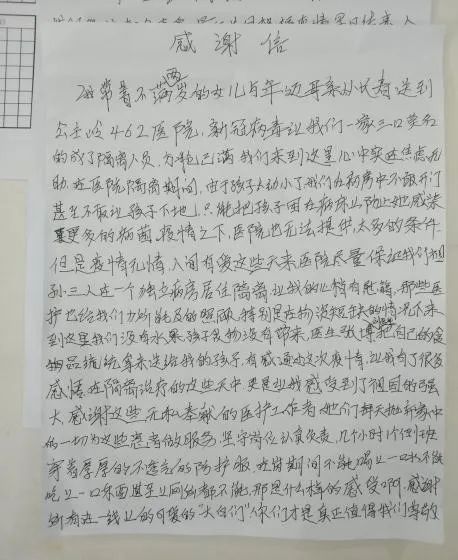 感谢信
我带着不满两岁的女儿与年迈母亲从长寿送到
公主岭462医院,新冠病毒让我们一家三口莫名
的成了隔离人员,为轮已满我们来到这里心中实边焦虑无
助,在医院隔离期间,由于孩子太动小了我们在病房中不敢开门
甚至不敢让孩子下地,只能把孩子困在病床上防止她感染
更多的病菌,疫情之下,医院也无法提供太多的条件
但是疫情无情,人间有爱这些天来医院尽量保证我们祖
孙三人在一个独立病房居住隔离让我的心稍有慰藉,那些医
护也给我们力所能及的照顾,特别是在物资短缺的情况下来
到这里我们没有水果孩子食物没有带来,医生 把自己的食
物品统统拿来送给我的孩子,有感通过这次疫情,让我有了很多
感悟在隔离治疗的这些天中更是让我感受到了祖国的强
大,感谢这些无私奉献的医护工作者她们每天抛弃家中
的一切为这些患者做服务,坚守岗位认真负责,几个小时1个倒班
穿着厚厚的不透气的防护服,在岗期间不能喝上一口水不能
吃上一口东西甚至上厕所都不能,那是什么样的感受啊,感谢
所有在一线上的可爱的"大白们"你们才是真正值得我们尊敬